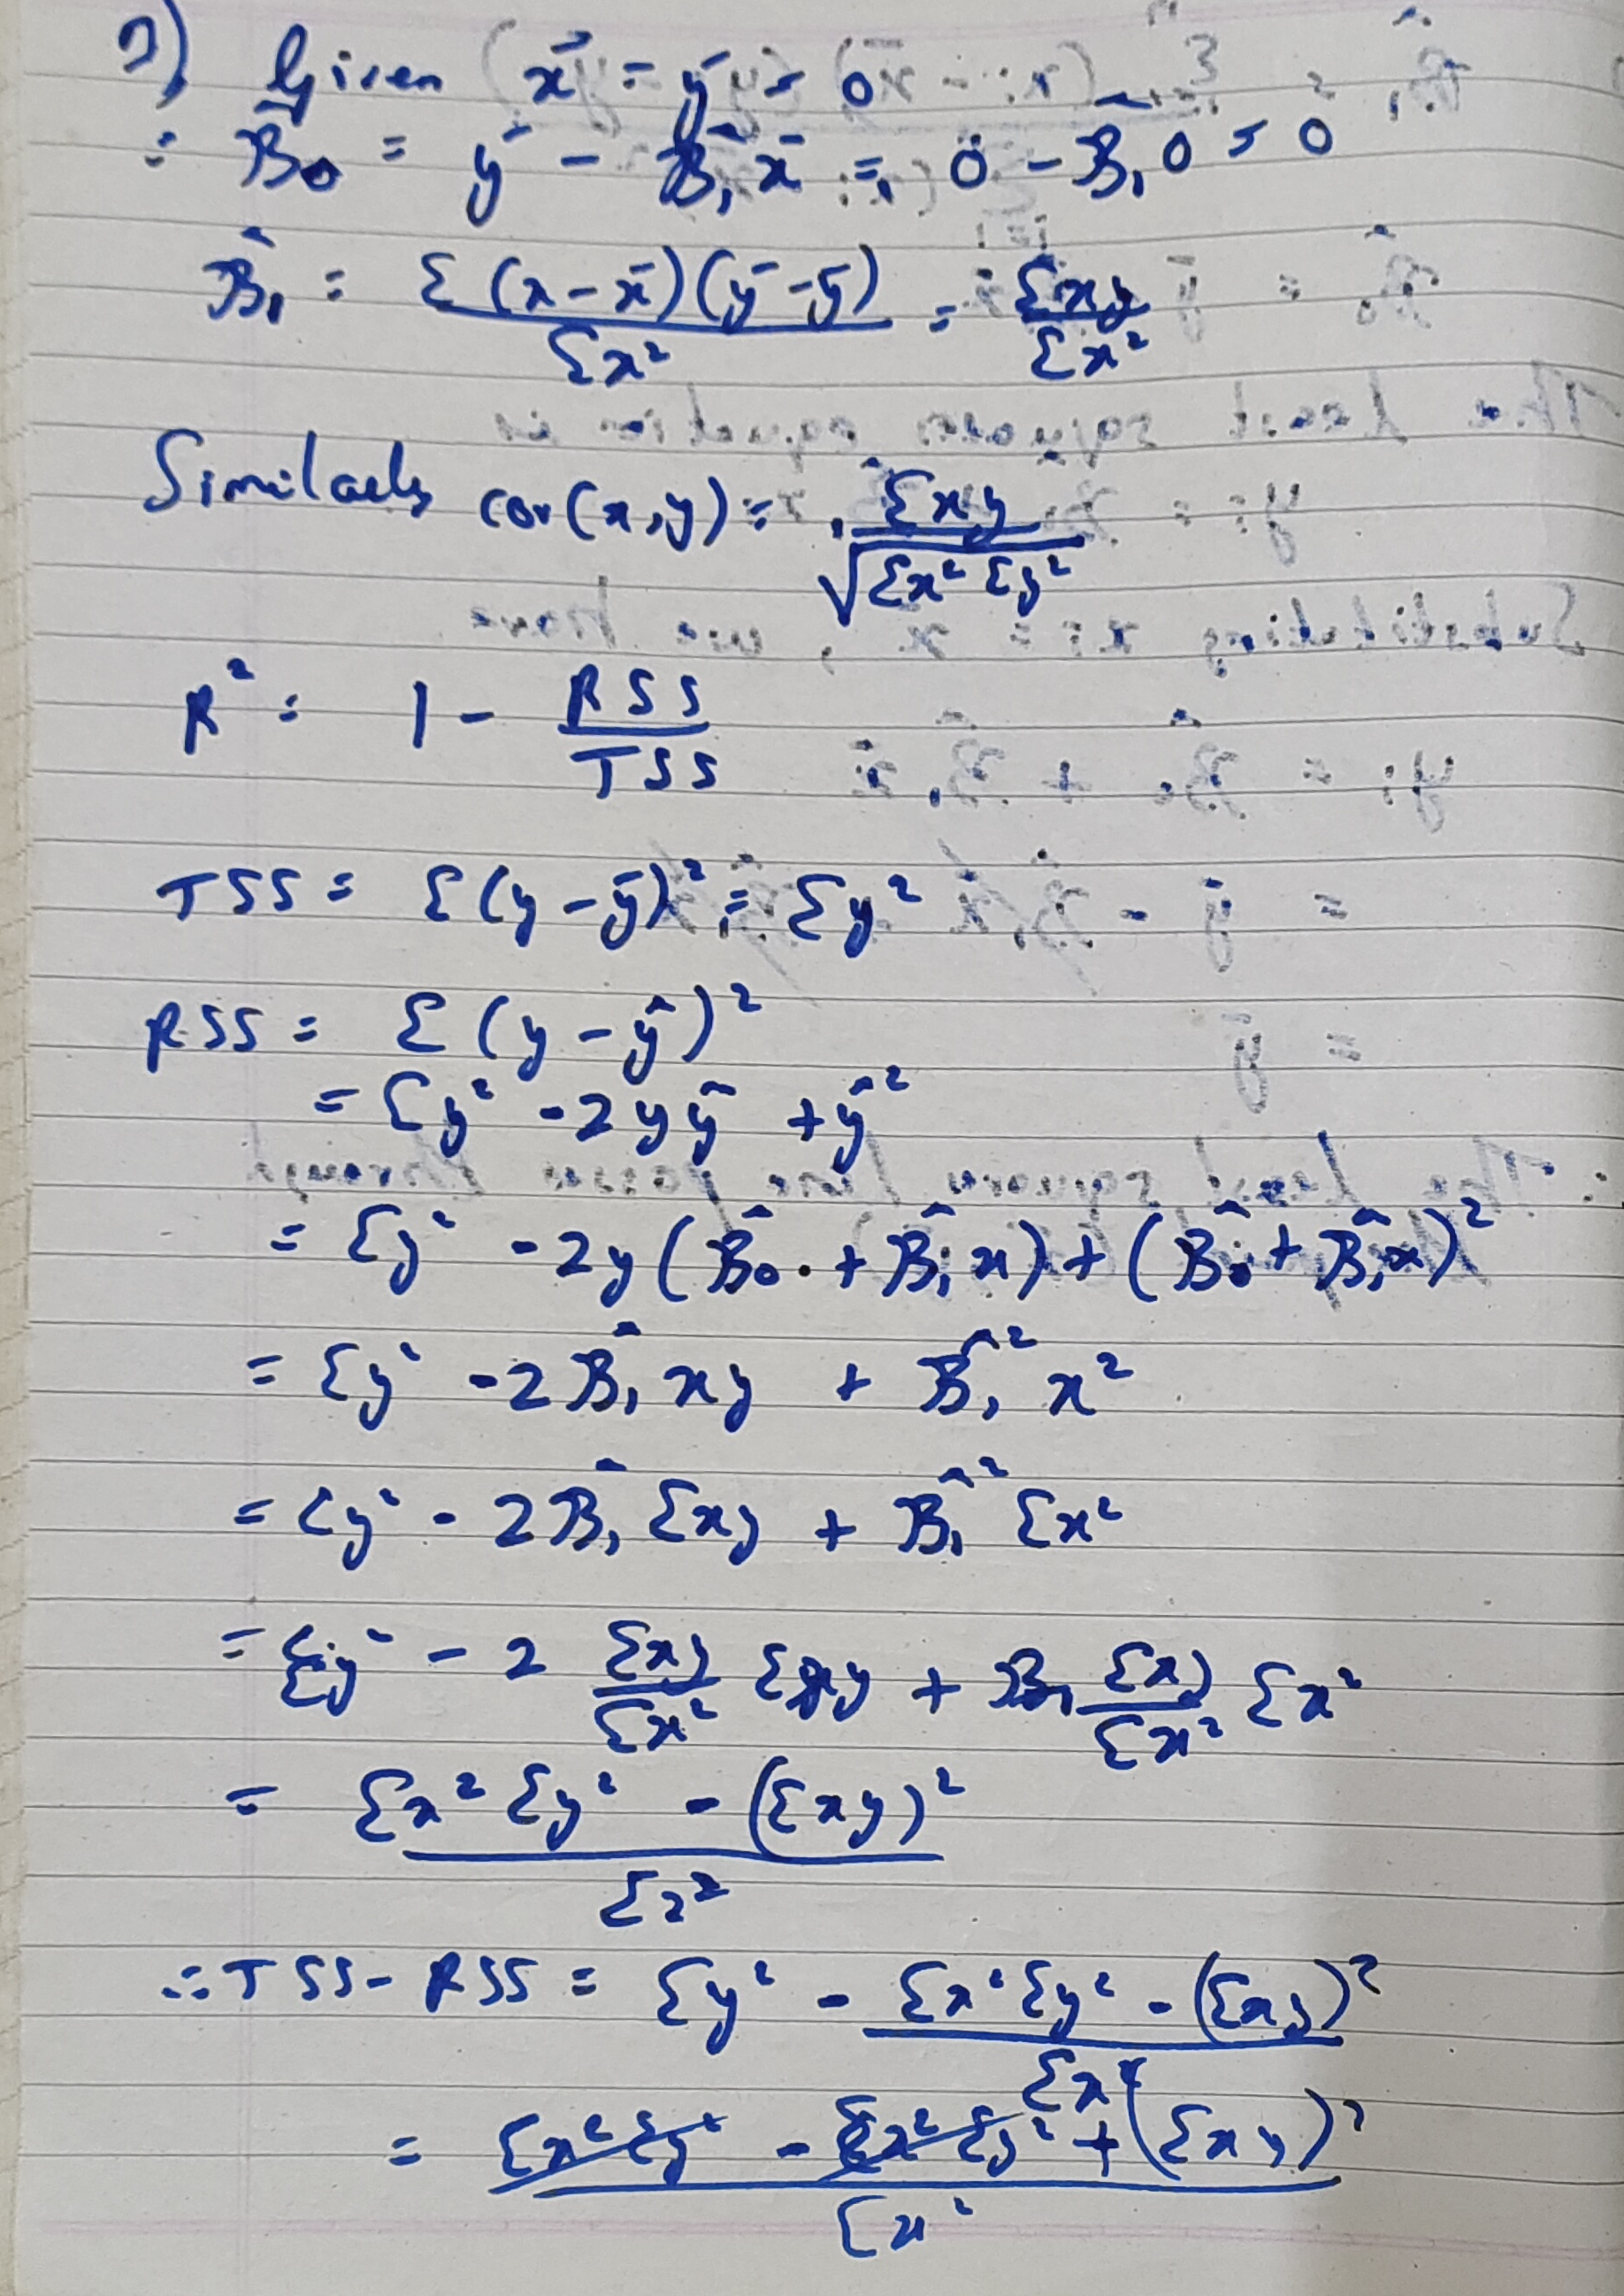 7) Given x̄ = ȳ = 0
∴ B̂₀ = ȳ - B̂₁x̄ = 0 - B̂₁0 = 0
B̂₁ = Σ(x-x̄)(ȳ-ȳ) / Σx² = Σxy / Σx²
Similarly cor(x,y) = Σxy / √Σx² Σy²
R² = 1 - RSS / TSS
TSS = Σ(y-ȳ)² = Σy²
RSS = Σ(y-ŷ)²
= Σy² - 2yŷ + ŷ²
= Σy² - 2y(B̂₀ + B̂₁x) + (B̂₀ + B̂₁x)²
= Σy² - 2B̂₁xy + B̂₁²x²
= Σy² - 2B̂₁Σxy + B̂₁²Σx²
= Σy² - 2 Σxy / Σx² Σxy + B₁ Σxy / Σx² Σx²
= Σx²Σy² - (Σxy)² / Σx²
∴ TSS - RSS = Σy² - Σx²Σy² - (Σxy)² / Σx²
= Σx²Σy² - Σx²Σy² + (Σxy)² / Σx²